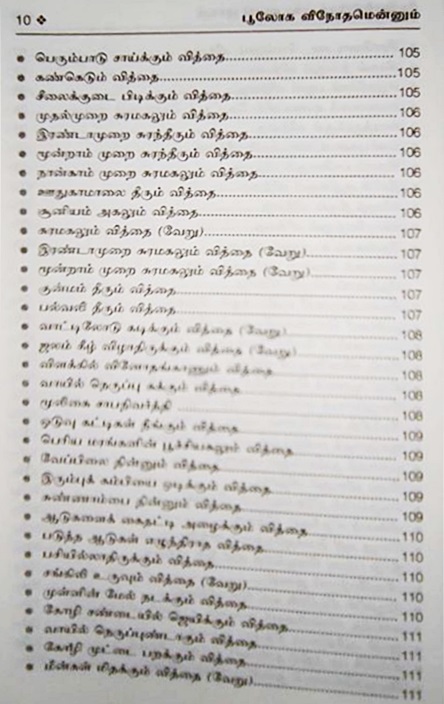 10 ❖ பூலோக வினோதமென்னும்
● பெரும்பாடு சாய்க்கும் வித்தை 105
● கண்கெடும் வித்தை 105
● சீலைக்குடை பிடிக்கும் வித்தை 105
● முதல்முறை சுரமகலும் வித்தை 106
● இரண்டாமுறை சுரந்தீரும் வித்தை 106
● மூன்றாம் முறை சுரந்தீரும் வித்தை 106
● நான்காம் முறை சுரமகலும் வித்தை 106
● ஊதுகாமாலை தீரும் வித்தை 106
● சூனியம் அகலும் வித்தை 106
● சுரமகலும் வித்தை (வேறு) 107
● இரண்டாமுறை சுரமகலும் வித்தை (வேறு) 107
● மூன்றாம் முறை சுரமகலும் வித்தை (வேறு) 107
● குன்மம் தீரும் வித்தை 107
● பல்வலி தீரும் வித்தை 107
● வாட்டிலோடு கடிக்கும் வித்தை (வேறு) 108
● ஜலம் கீழ் விழாதிருக்கும் வித்தை (வேறு) 108
● விளக்கில் வினோதங்காணும் வித்தை 108
● வாயில் நெருப்பு கக்கும் வித்தை 108
● மூலிகை சாபநிவர்த்தி 108
● ஓடுவு கட்டிகள் நீங்கும் வித்தை 109
● பெரிய மரங்களின் பூச்சியகலும் வித்தை 109
● வேப்பிலை தின்னும் வித்தை 109
● இரும்புக் கம்பியை ஒடிக்கும் வித்தை 109
● சுண்ணாம்பை தின்னும் வித்தை 109
● ஆடுகளைக் கைதட்டி அழைக்கும் வித்தை 110
● படுத்த ஆடுகள் எழுந்திராத வித்தை 110
● பசியில்லாதிருக்கும் வித்தை 110
● சங்கிலி உருவும் வித்தை (வேறு) 110
● முள்ளின் மேல் நடக்கும் வித்தை 110
● கோழி சண்டையில் ஜெயிக்கும் வித்தை 110
● வாயில் நெருப்புண்டாகும் வித்தை 111
● கோழி முட்டை பறக்கும் வித்தை 111
● மீன்கள் மிதக்கும் வித்தை (வேறு) 111